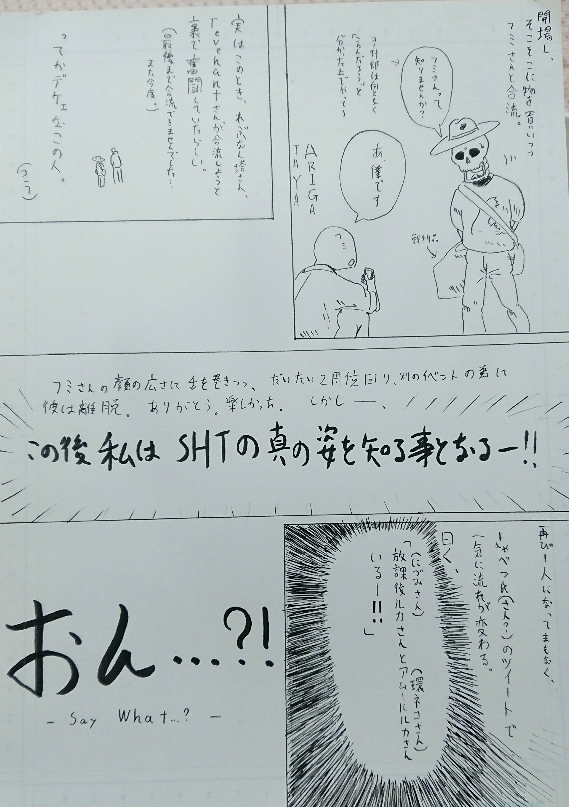 開場し、
そこそこに物を買いつつ
フミさんと合流。
フミさんって、
知りませんか？
あ、僕です
フミ
戦利品
ARIGA
THYA
実はこのとき、れぷなん塔さん、
revenantさんが合流しようと
裏で奮闘していたらしい。
(最後まで合流できませんでした…
また今度。)
ってかデケェなこの人。
(つづう)
フミさんの顔の広さに舌を巻きつつ、だいたい2周位回り、別のイベントの為に
彼は離脱。ありがとう。楽しかった。しかし——、
この後私はSHTの真の姿を知る事となるー!!
再び1人になってまもなく、
しゃべつ氏(さん?)のツイートで
一気に流れが変わる。
曰く、
「(にづみさん)(環ネコさん)
放課後ルカさんとアムールルカさん
いるー!!」
おん…?!
- Say What...? -